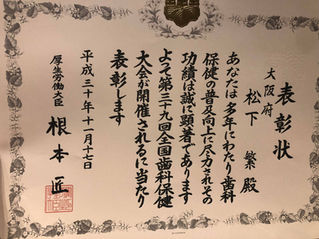 表彰状
大阪府
松下 繁 殿
あなたは多年にわたり歯科
保健の普及向上に尽力されその
功績は誠に顕著であります
よって第三十九回全国歯科保健
大会が開催されるに当たり
表彰します
平成三十年十一月十七日
厚生労働大臣 根本 匠